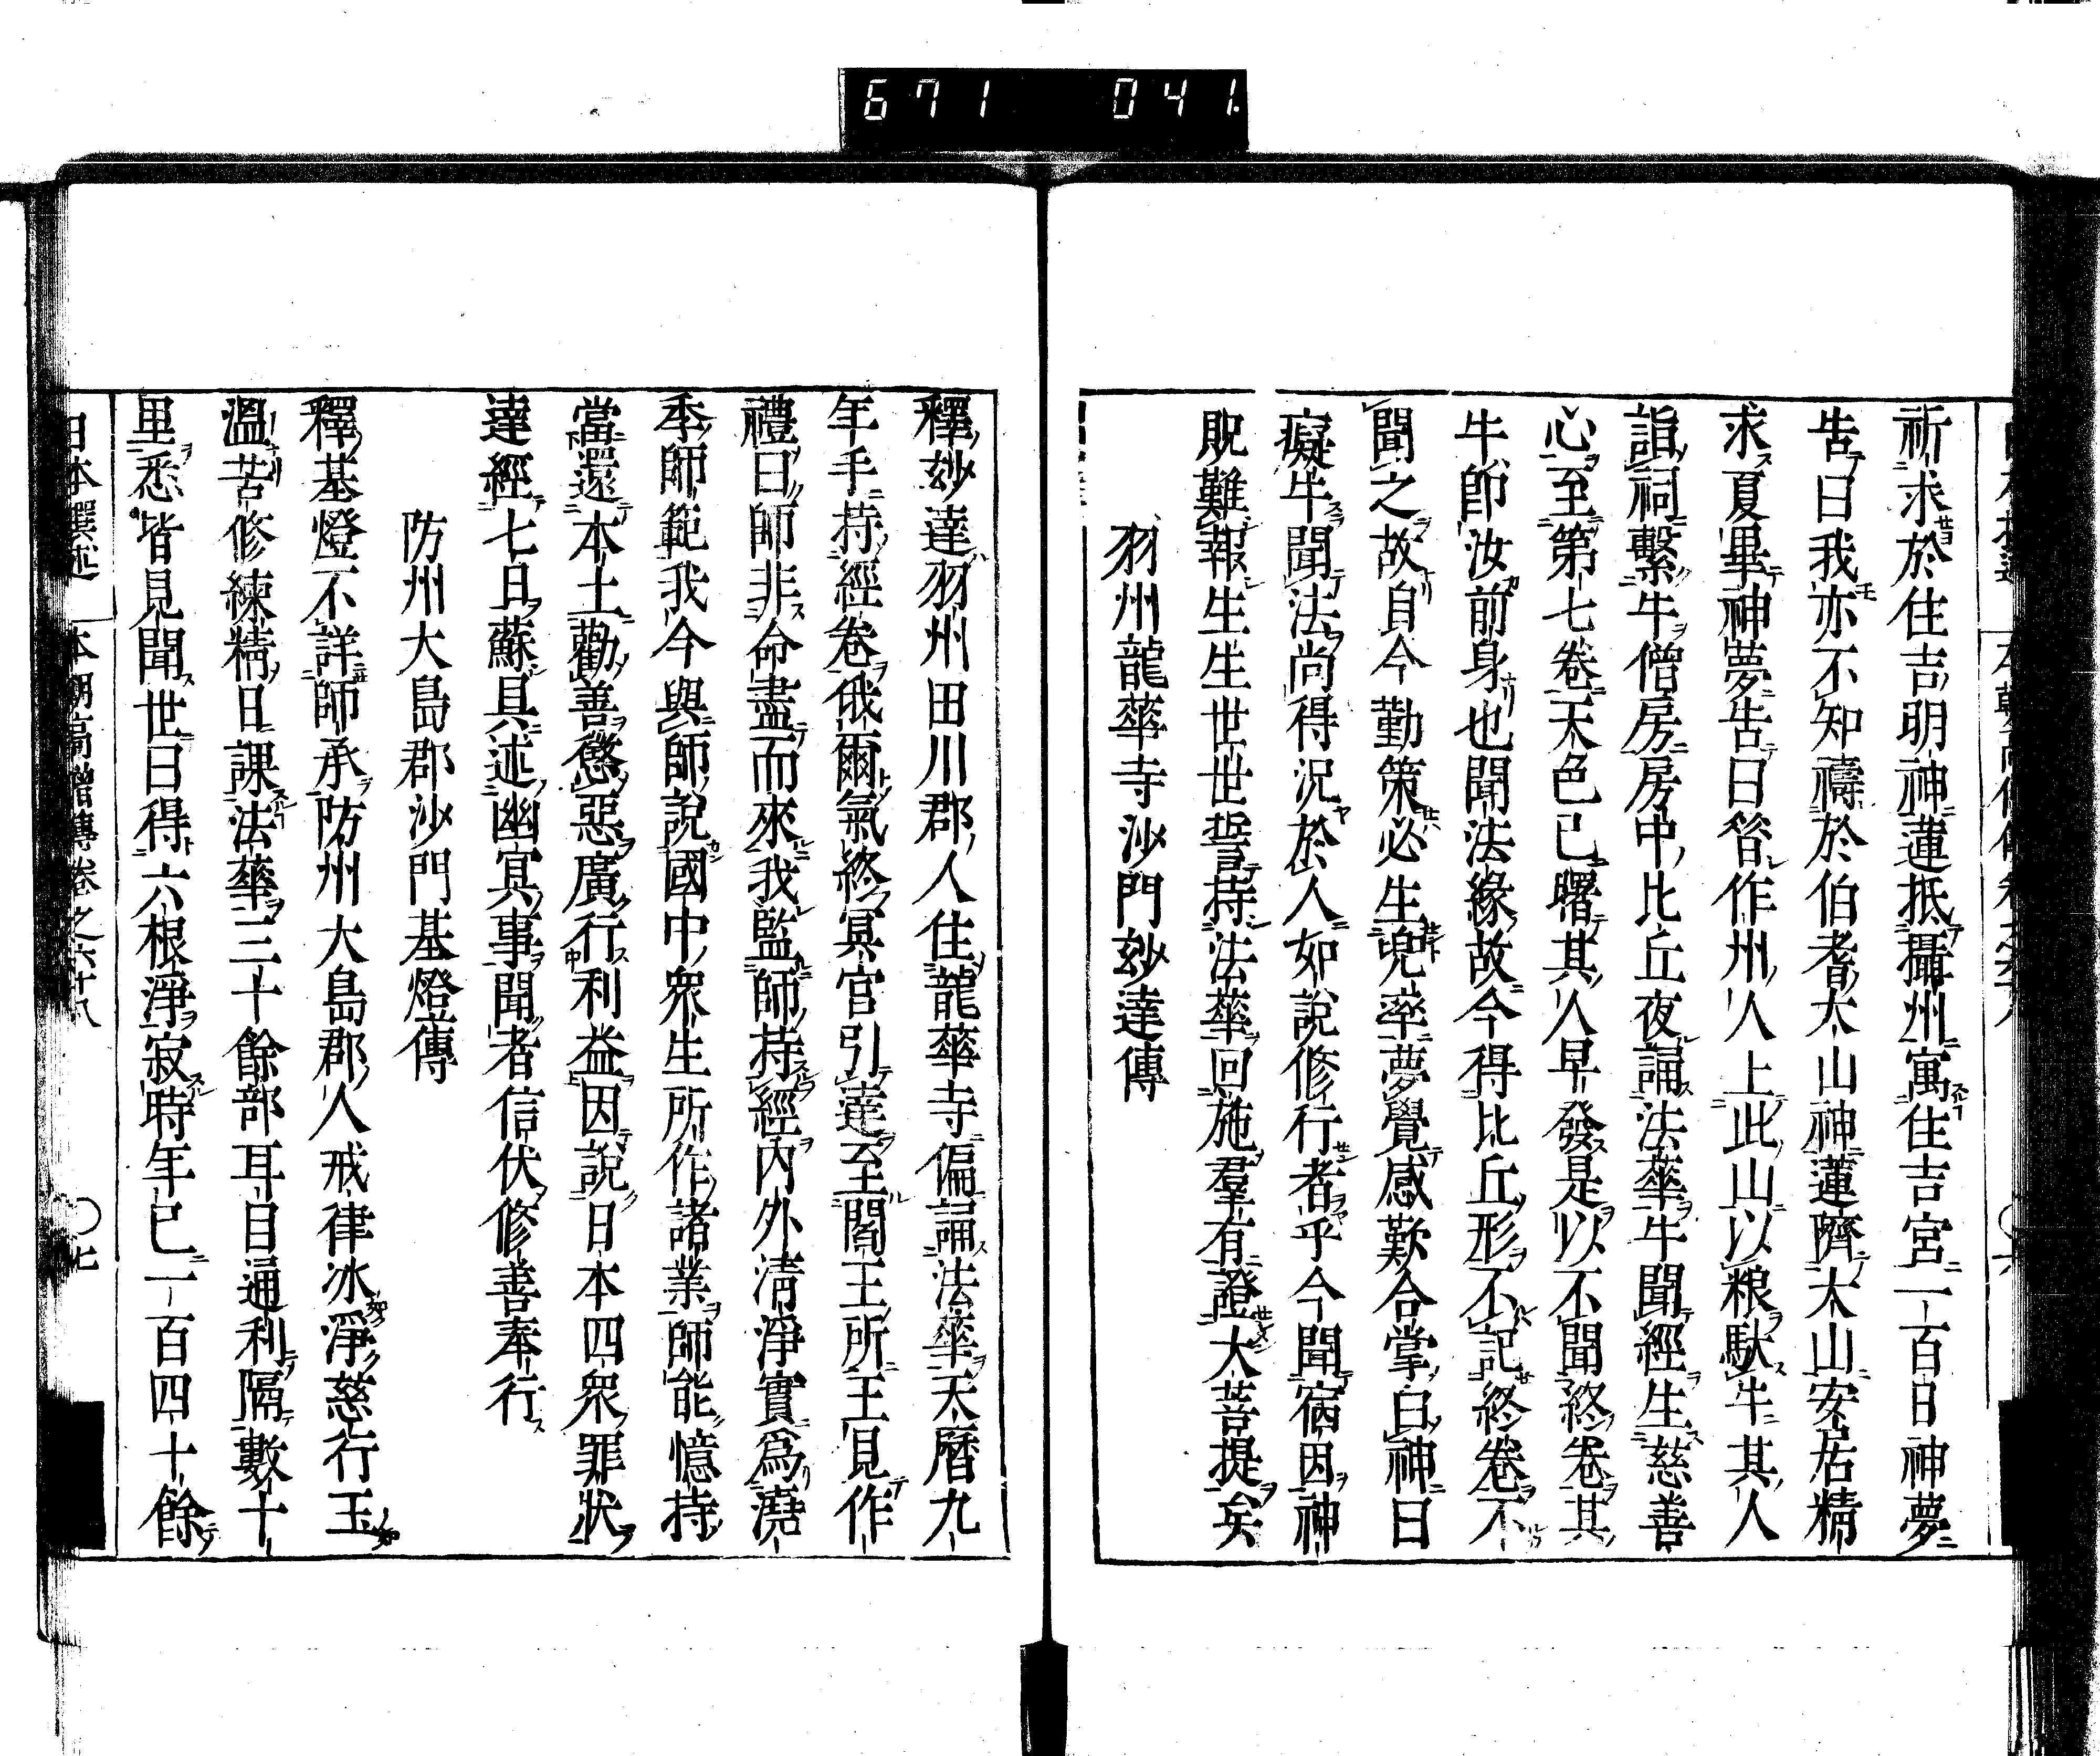 671 041
祈求於住吉明神蓮抵攝州寓住吉宮一百日神夢
告曰我亦不知禱於伯耆大山神蓮躋大山安居精
求夏畢神夢告曰昝作州人上此山以粮馱牛其人
詣祠繫牛僧房房中比丘夜誦法華牛聞經生慈善
心至第七卷天色已曙其人早發是以不聞終卷其
牛卽汝前身也聞法緣故今得比丘形不記終卷不
聞之故自今勤策必生兜率夢覺感歎合掌白神曰
癡牛聞法尚得況於人如說修行者乎今聞宿因神
貺難報生生世世誓持法華回施羣有證大菩提矣
羽州龍華寺沙門玅達傳
釋玅達羽州田川郡人住龍華寺偏誦法華天曆九
年手持經卷俄爾氣終冥官引達至閻王所王見作
禮曰師非命盡而來我監師持經內外淸淨實爲澆
季師範我今與師說國中眾生所作諸業師能憶持
當還本土勸善懲惡廣行利益因說日本四眾罪狀
達經七日蘇具述幽冥事聞者信伏修善奉行
防州大島郡沙門基燈傳
釋基燈不詳師承防州大島郡人戒律冰淨慈行玉
溫苦修練精日課法華三十餘部耳目通利隔數十
里悉皆見聞世曰得六根淨寂時年已一百四十餘
日本撰述 本朝高僧傳卷之六十八 〇七